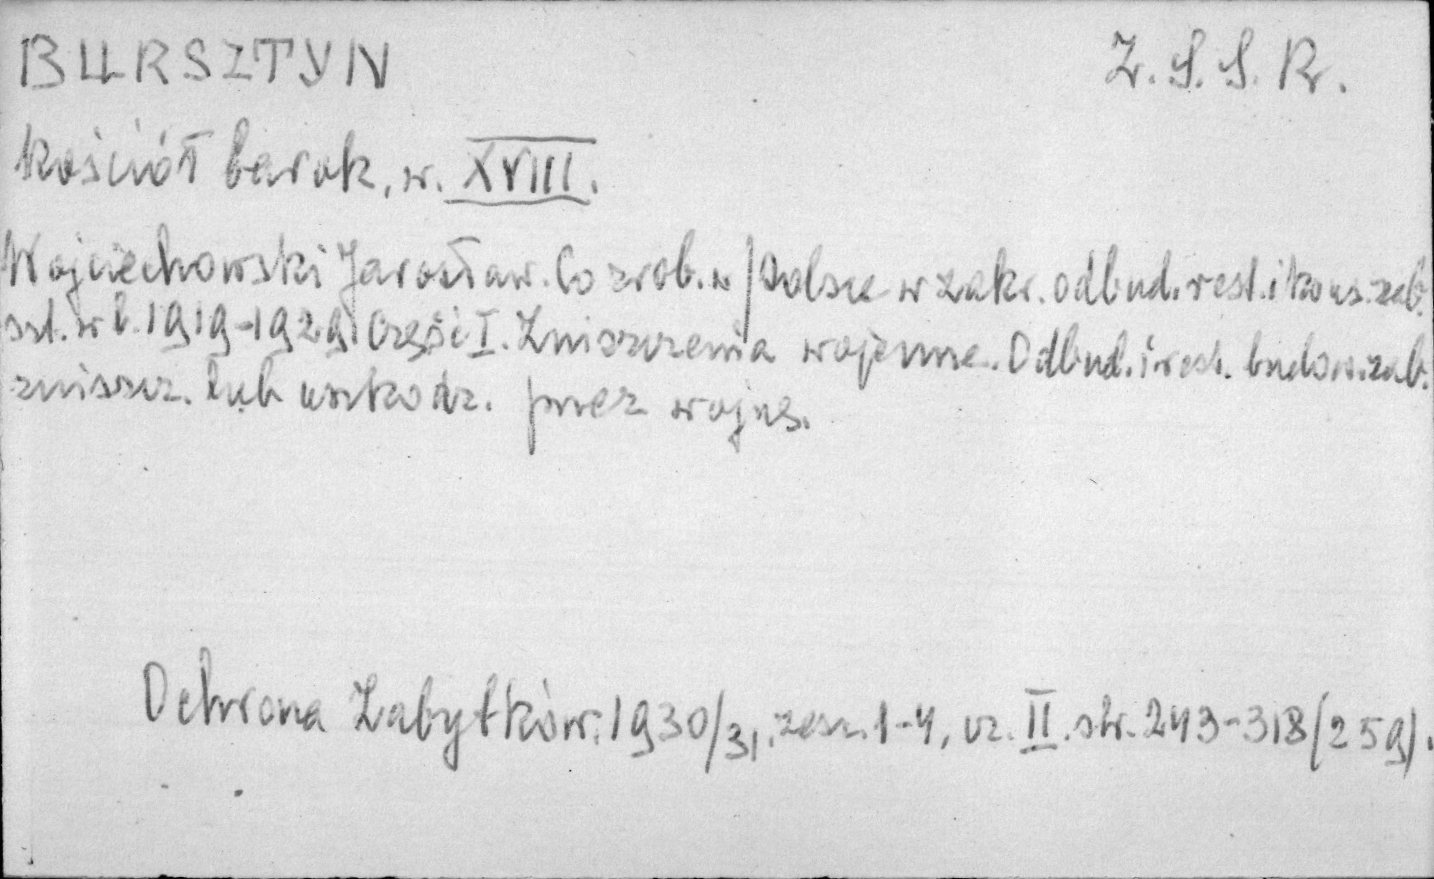 BURSZTYN Z.S.S.R.
Kościół barok, w. XVIII.
Wojciechowski Jarosław. Co zrob. w Polsce w zakr. odbud. rest. i kons. zab.
szt. w l. 1919-1929. Część I. Zniszczenia wojenne. Odbud. i rest. budow. zab.
zniszcz. lub uszkodz. przez wojnę.
Ochrona Zabytków. 1930/31. zesz. 1-4, cz. II. str. 243-318 (259).